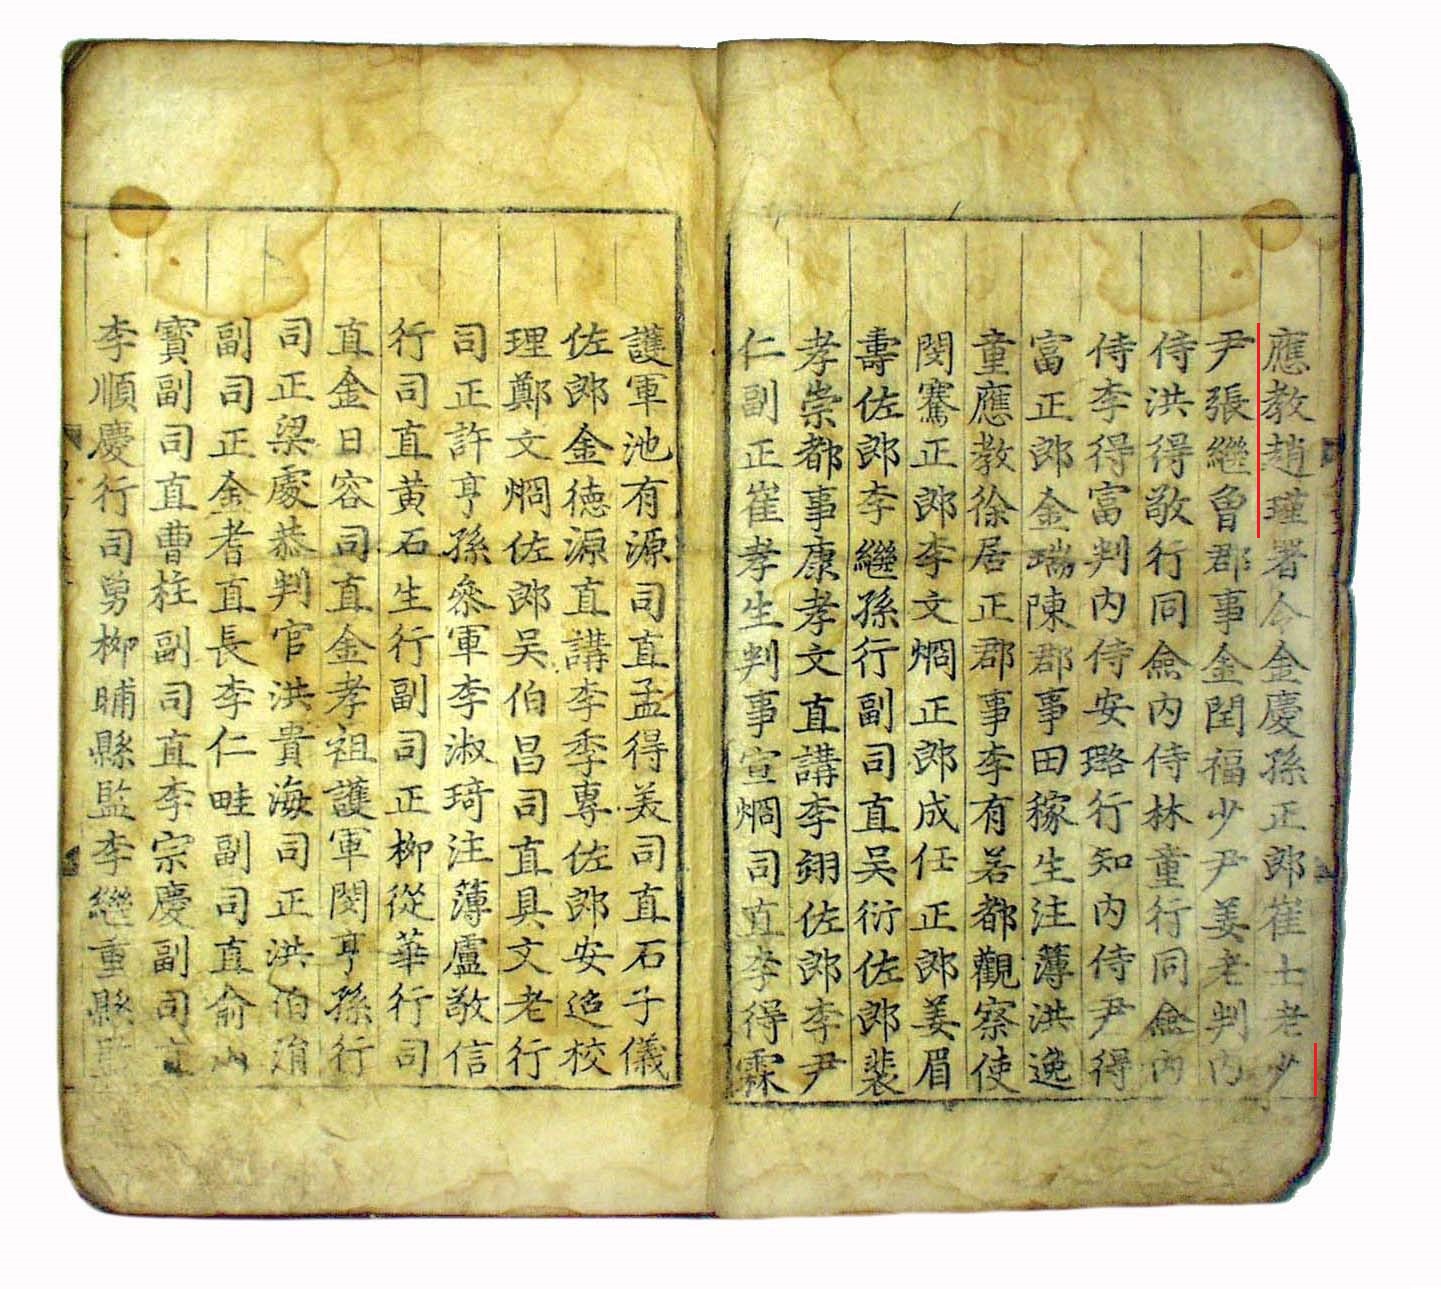 應教趙瑾署令金慶孫正郎崔士老少
尹張繼曾郡事金閏福少尹姜老判內
侍洪得敬行同僉內侍林童行同僉內
侍李得富判內侍安璐行知內侍尹得
富正郎金瑞陳郡事田稼生注薄洪逸
童應教徐居正郡事李有若都觀察使
閔騫正郎李文烱正郎成任正郎姜眉
壽佐郎李繼孫行副司直吴衍佐郎裴
孝崇都事康孝文直講李翊佐郎李尹
仁副正崔孝生判事宣烱司直李得霖
護軍池有源司直孟得美司直石子儀
佐郎金德源直講李季專佐郎安迨校
理鄭文烱佐郎吴伯昌司直具文老行
司正許亨孫叅軍李淑琦注薄盧敬信
行司直黄石生行副司正柳從華行司
直金日容司直金孝祖護軍閔亨孫行
司正梁處恭判官洪貴海司正洪伯涓
副司正金者直長李仁畦副司直俞山
寳副司直曹柱副司直李宗慶副司直
李順慶行司勇柳晡縣監李繼重縣監